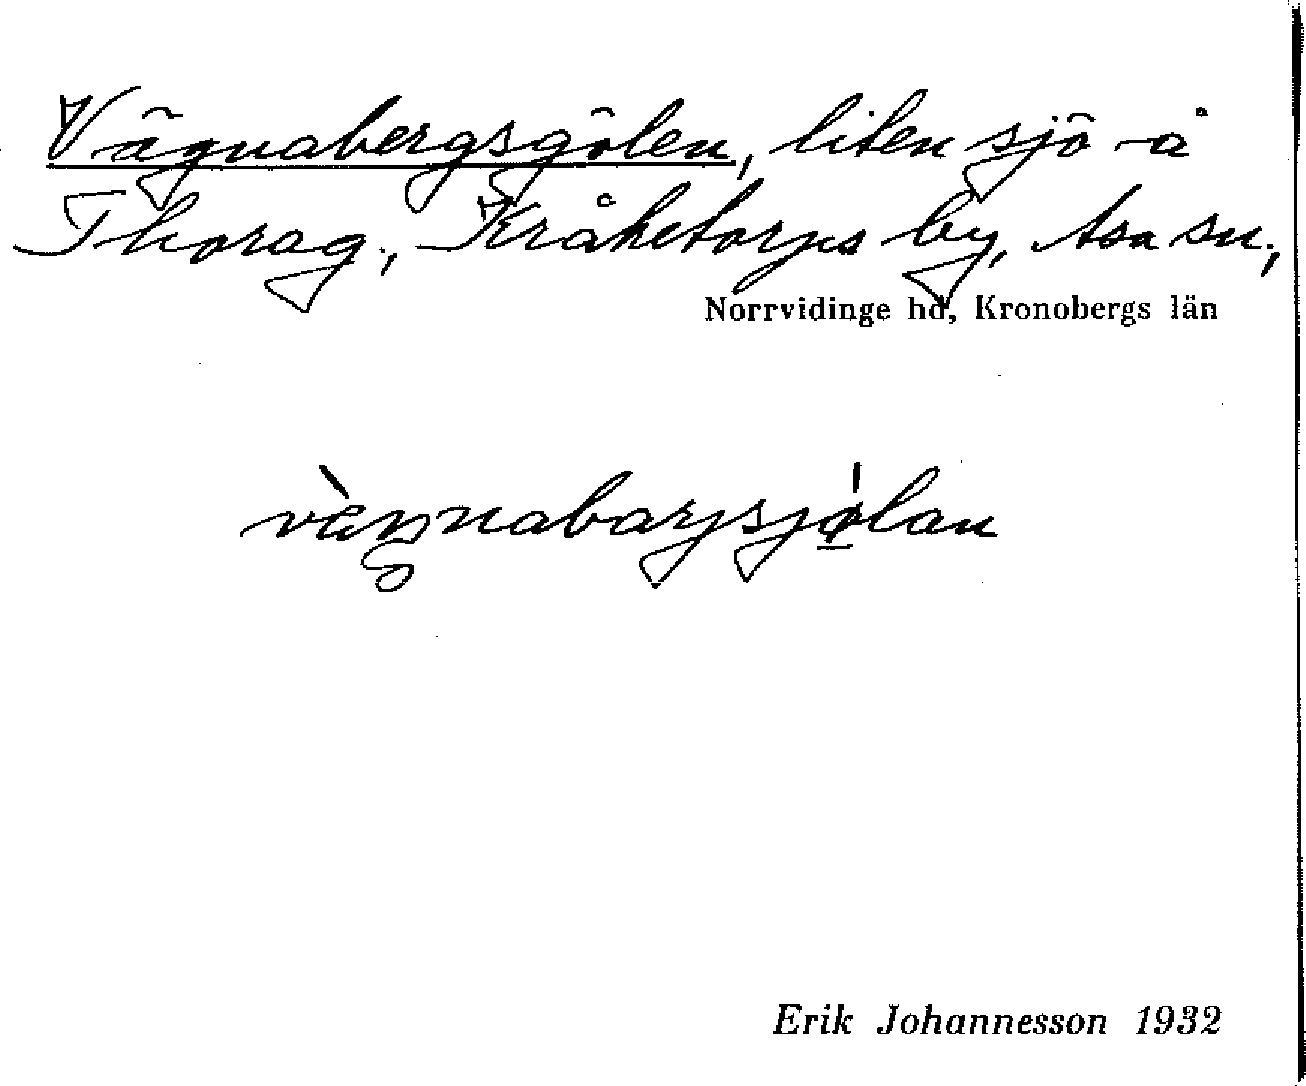 Vägnabergsgölen, liten sjö å
Thorag., Kråketorps by, Asa sn.,
Norrvidinge hd, Kronobergs län
Erik Johannesson 1932